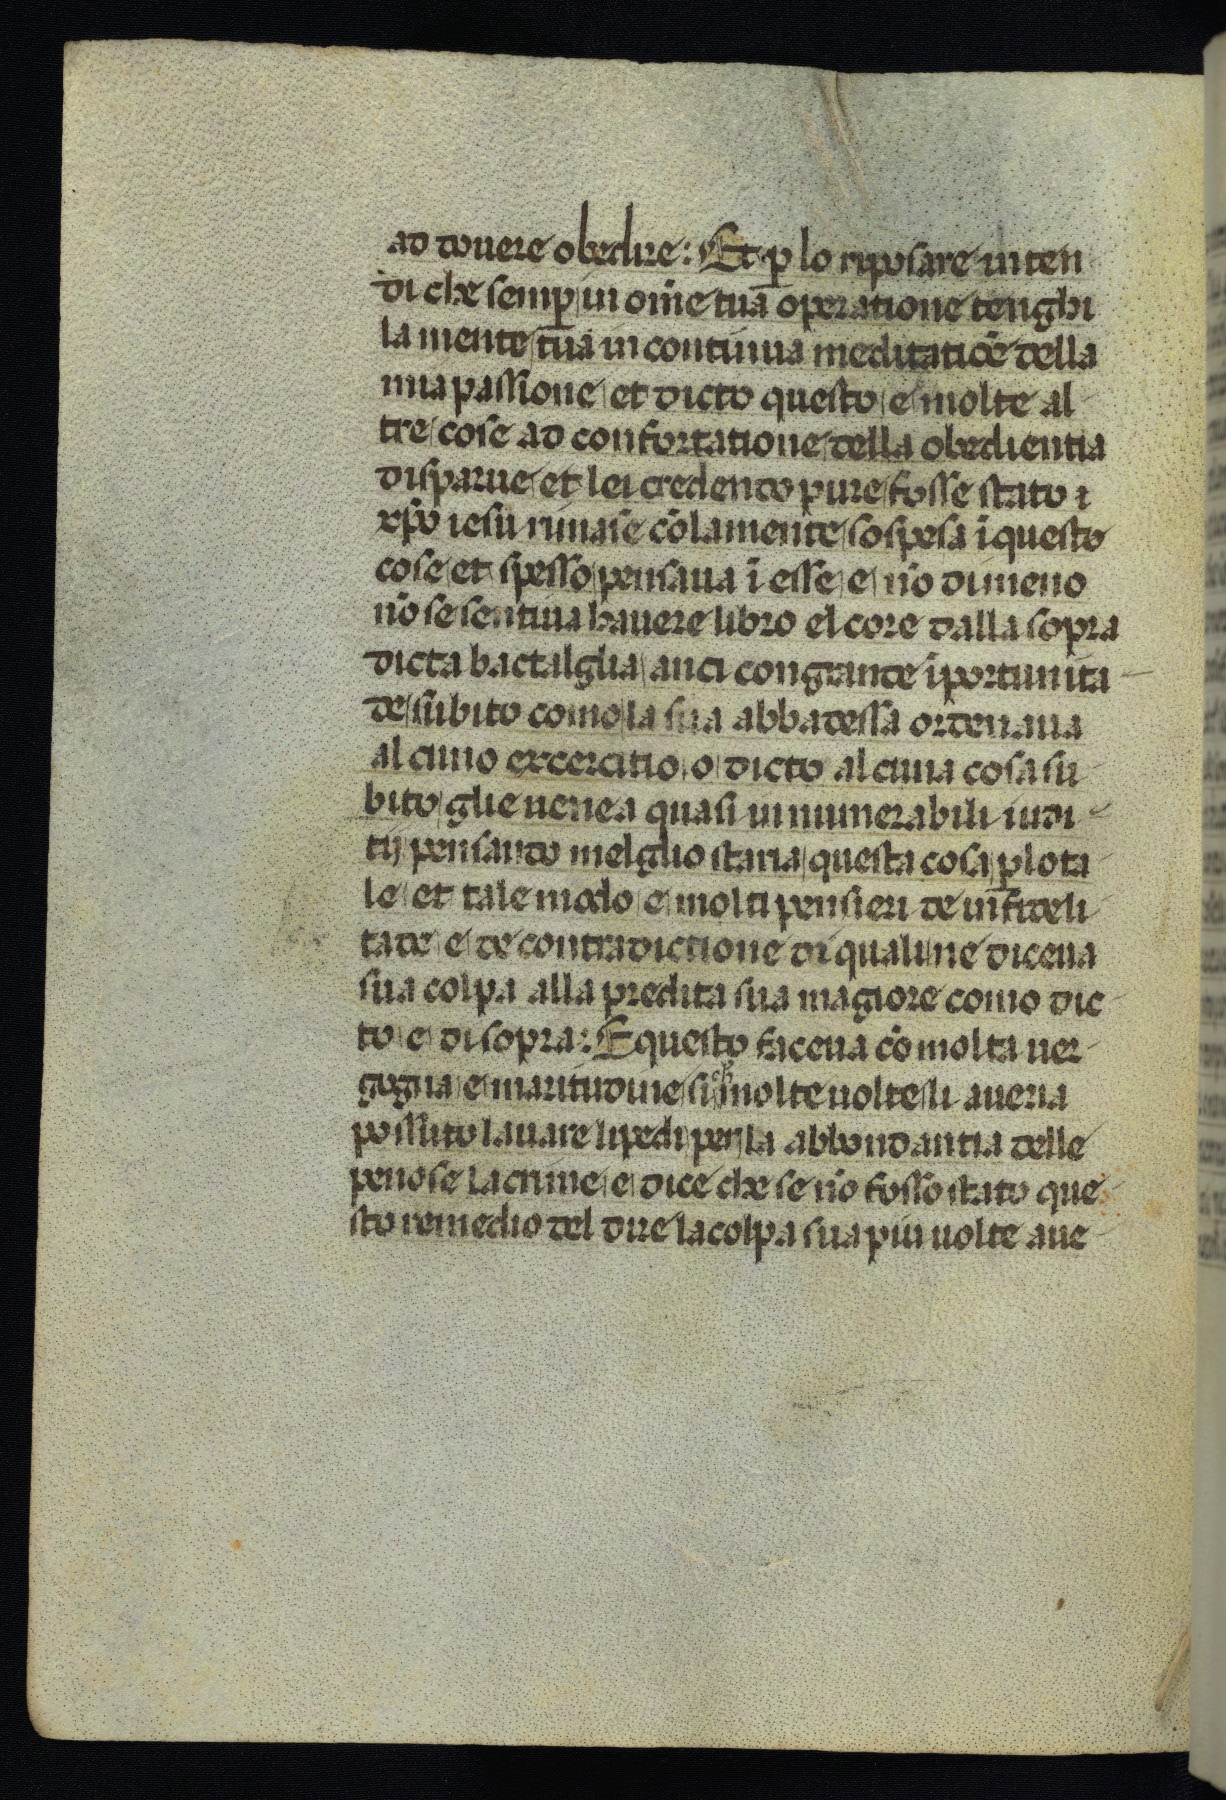 ad douere obedire: Et p̱ lo riposare inten
di che semp̱ in om̄e tua operatione tenghi
la mente tua in continua meditatiōe della
mia passione et dicto questo e molte al
tre cose ad confortatione della obedientia
disparue et lei credendo pure fosse stato i
xp̄o iesu rimase cō la mente sospesa ī questo
cose et spesso pensaua ī esse e nō dimeno
nō se sentiua hauere libro el core dalla sopra
dicta bactalglia anci con grande īportunita
de subito como la sua abbadessa ordenaua
alcuno excercitio o dicto alcuna cosa su
bito glie uenea quasi innumerabili iudi
tij pensando melglio staria questa cosa p̱ lo ta
le et tale modo e molti pensieri de infideli
tade e de contradictione di quali ne diceua
sua colpa alla predita sua magiore como dic
to e di sopra: E questo faceua cō molta uer
gogna e maritudine si ch̄ molte uolte li aueria
possuto lauare li pedi per la abbondantia delle
penose lacrime e dice che se nō fosso stato que
sto remedio del dire la colpa sua piu uolte aue